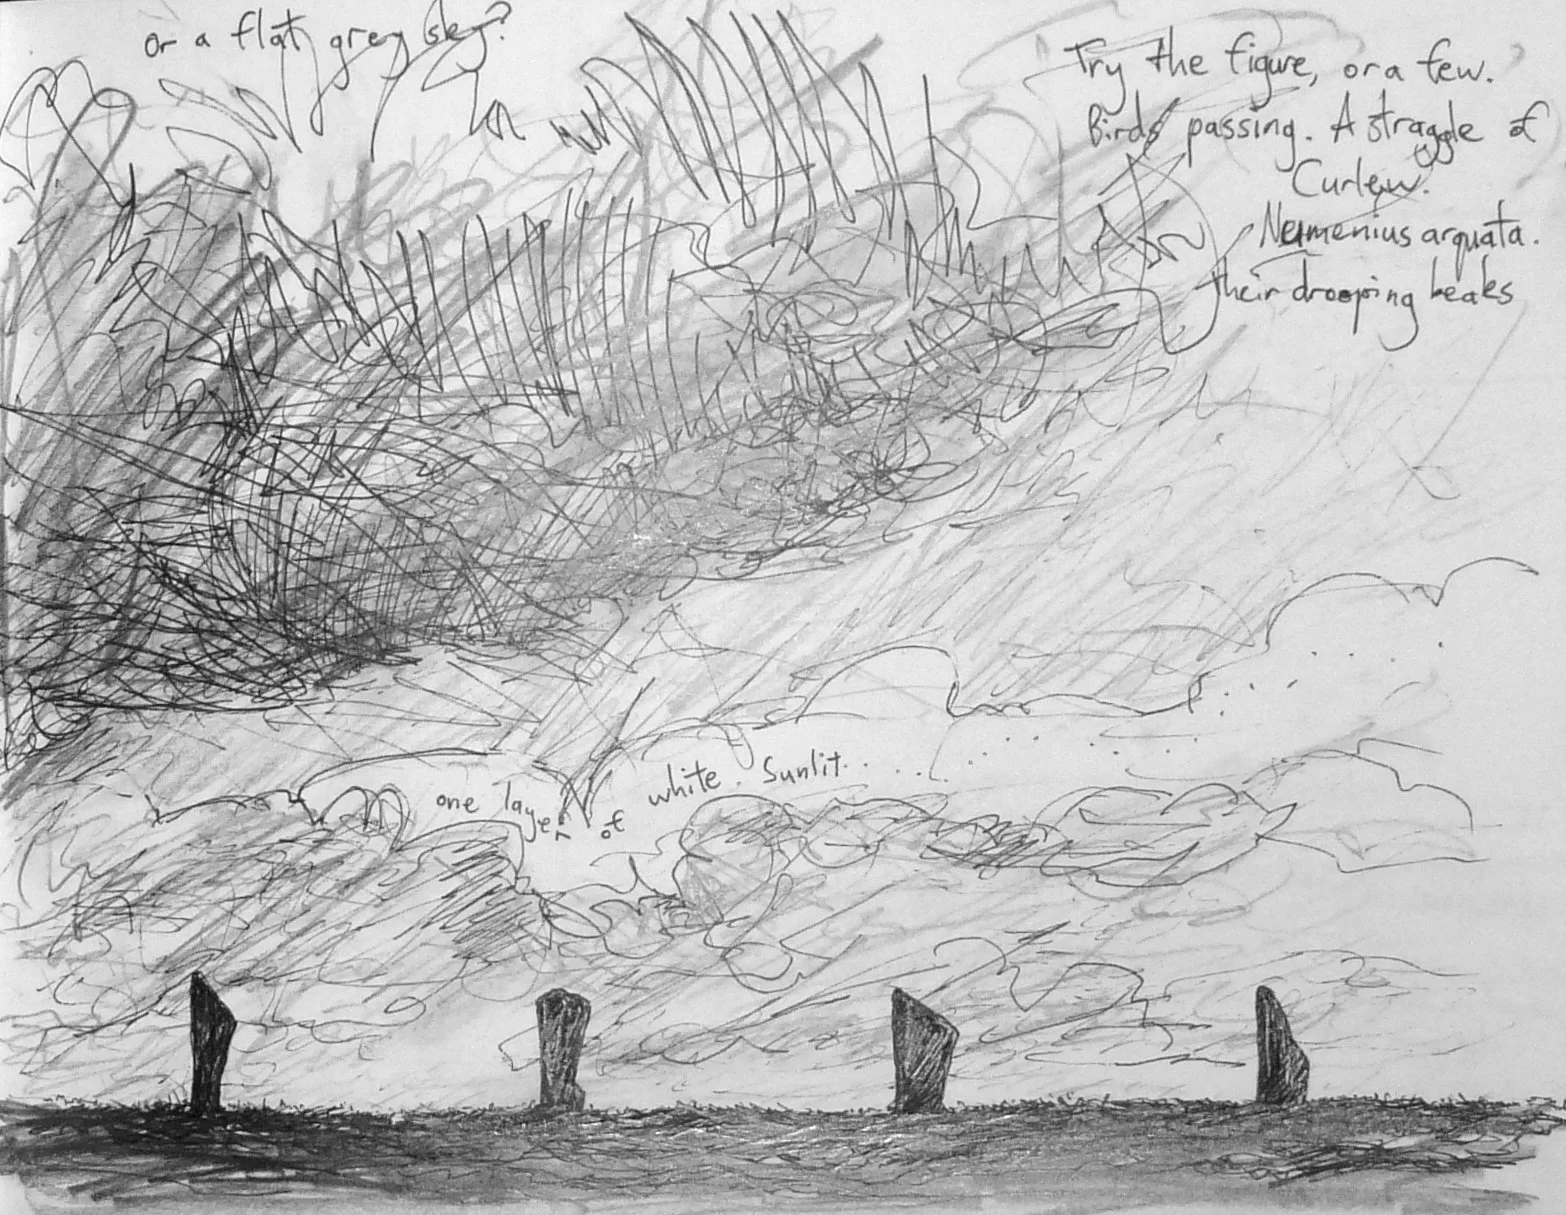 or a flat grey sky?
Try the figure, or a few.
Birds passing. A straggle of
Curlew.
Numenius arquata.
their drooping beaks
one layer of white. Sunlit.